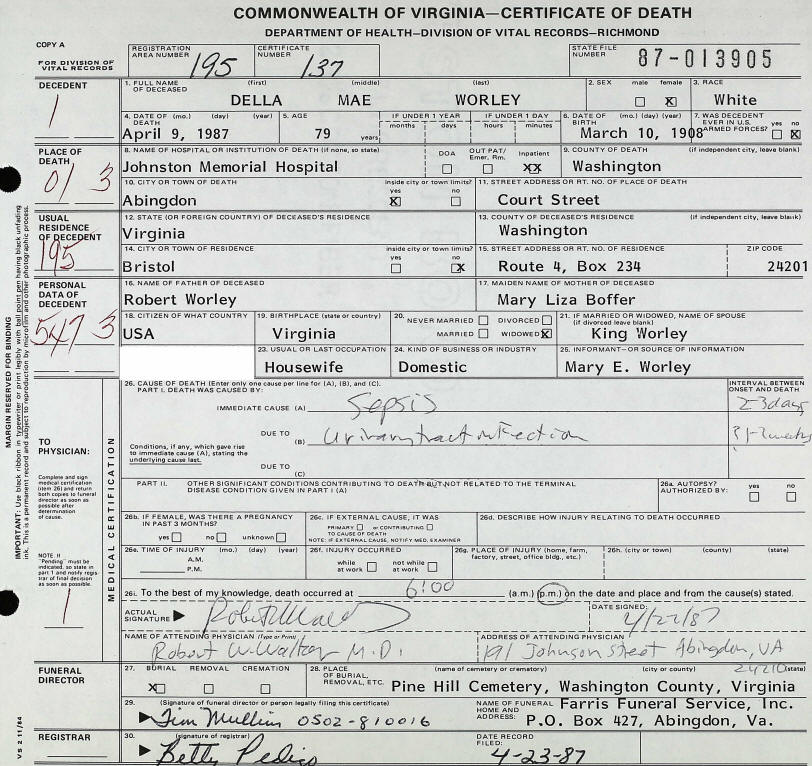 COMMONWEALTH OF VIRGINIA—CERTIFICATE OF DEATH
DEPARTMENT OF HEALTH—DIVISION OF VITAL RECORDS—RICHMOND
COPY A
FOR DIVISION OF VITAL RECORDS
REGISTRATION AREA NUMBER 195
CERTIFICATE NUMBER 137
STATE FILE NUMBER 87-013905
DECEDENT
1
1. FULL NAME OF DECEASED (first) (middle) (last)
DELLA MAE WORLEY
2. SEX male female X
3. RACE
White
4. DATE OF DEATH (mo.) (day) (year)
April 9, 1987
5. AGE
79 years
IF UNDER 1 YEAR months days
IF UNDER 1 DAY hours minutes
6. DATE OF BIRTH (mo.) (day) (year)
March 10, 1908
7. WAS DECEDENT EVER IN U.S. ARMED FORCES? yes no X
PLACE OF DEATH
01 3
8. NAME OF HOSPITAL OR INSTITUTION OF DEATH (if none, so state)
Johnston Memorial Hospital
DOA OUT PAT/ Emer. Rm. Inpatient XX
9. COUNTY OF DEATH (if independent city, leave blank)
Washington
10. CITY OR TOWN OF DEATH
Abingdon
inside city or town limits? yes X no
11. STREET ADDRESS OR RT. NO. OF PLACE OF DEATH
Court Street
USUAL RESIDENCE OF DECEDENT
195
12. STATE (OR FOREIGN COUNTRY) OF DECEASED'S RESIDENCE
Virginia
13. COUNTY OF DECEASED'S RESIDENCE (if independent city, leave blank)
Washington
14. CITY OR TOWN OF RESIDENCE
Bristol
inside city or town limits? yes no X
15. STREET ADDRESS OR RT. NO. OF RESIDENCE ZIP CODE
Route 4, Box 234 24201
PERSONAL DATA OF DECEDENT
547 3
16. NAME OF FATHER OF DECEASED
Robert Worley
17. MAIDEN NAME OF MOTHER OF DECEASED
Mary Liza Boffer
18. CITIZEN OF WHAT COUNTRY
USA
19. BIRTHPLACE (state or country)
Virginia
20. NEVER MARRIED DIVORCED
MARRIED WIDOWED X
21. IF MARRIED OR WIDOWED, NAME OF SPOUSE
(if divorced leave blank)
King Worley
23. USUAL OR LAST OCCUPATION
Housewife
24. KIND OF BUSINESS OR INDUSTRY
Domestic
25. INFORMANT—OR SOURCE OF INFORMATION
Mary E. Worley
MARGIN RESERVED FOR BINDING
IMPORTANT: Use black ribbon in typewriter or print legibly with ball point pen having black unfading
ink. This is a permanent record and subject to reproduction by microfilm and other photographic process.
VS 2 11/84
TO PHYSICIAN:
Complete and sign medical certification (item 26) and return both copies to funeral director as soon as possible after determination of cause.
NOTE: If "Pending" must be indicated, so state in part 1 and notify registrar of final decision as soon as possible.
1
MEDICAL CERTIFICATION
26. CAUSE OF DEATH (Enter only one cause per line for (A), (B), and (C).
PART I. DEATH WAS CAUSED BY:
INTERVAL BETWEEN ONSET AND DEATH
IMMEDIATE CAUSE (A) Sepsis
DUE TO (B) Urinary tract infection
Conditions, if any, which gave rise to immediate cause (A), stating the underlying cause last.
DUE TO (C)
PART II. OTHER SIGNIFICANT CONDITIONS CONTRIBUTING TO DEATH BUT NOT RELATED TO THE TERMINAL DISEASE CONDITION GIVEN IN PART I (A)
26a. AUTOPSY? AUTHORIZED BY: yes no
26b. IF FEMALE, WAS THERE A PREGNANCY IN PAST 3 MONTHS?
yes no unknown
26c. IF EXTERNAL CAUSE, IT WAS
PRIMARY or CONTRIBUTING
TO CAUSE OF DEATH
NOTE: IF EXTERNAL CAUSE, NOTIFY MED. EXAMINER
26d. DESCRIBE HOW INJURY RELATED TO DEATH OCCURRED
26e. TIME OF INJURY (mo.) (day) (year)
A.M.
P.M.
26f. INJURY OCCURRED
while at work not while at work
26g. PLACE OF INJURY (home, farm, factory, street, office bldg., etc.)
26h. (city or town) (county) (state)
26i. To the best of my knowledge, death occurred at 6:00 (a.m.) (p.m.) on the date and place and from the cause(s) stated.
ACTUAL SIGNATURE
DATE SIGNED:
4/22/87
NAME OF ATTENDING PHYSICIAN (Type or Print)
Robert W. Walton M.D.
ADDRESS OF ATTENDING PHYSICIAN
191 Johnson Street Abingdon, VA
24210
FUNERAL DIRECTOR
27. BURIAL REMOVAL CREMATION
X
28. PLACE OF BURIAL, REMOVAL, ETC. (name of cemetery or crematory) (city or county) (state)
Pine Hill Cemetery, Washington County, Virginia
29. (Signature of funeral director or person legally filing this certificate)
Jim Mullins 0502-810016
NAME OF FUNERAL HOME AND ADDRESS:
Farris Funeral Service, Inc.
P.O. Box 427, Abingdon, Va.
REGISTRAR
30. (signature of registrar)
Betty Pedigo
DATE RECORD FILED:
4-23-87